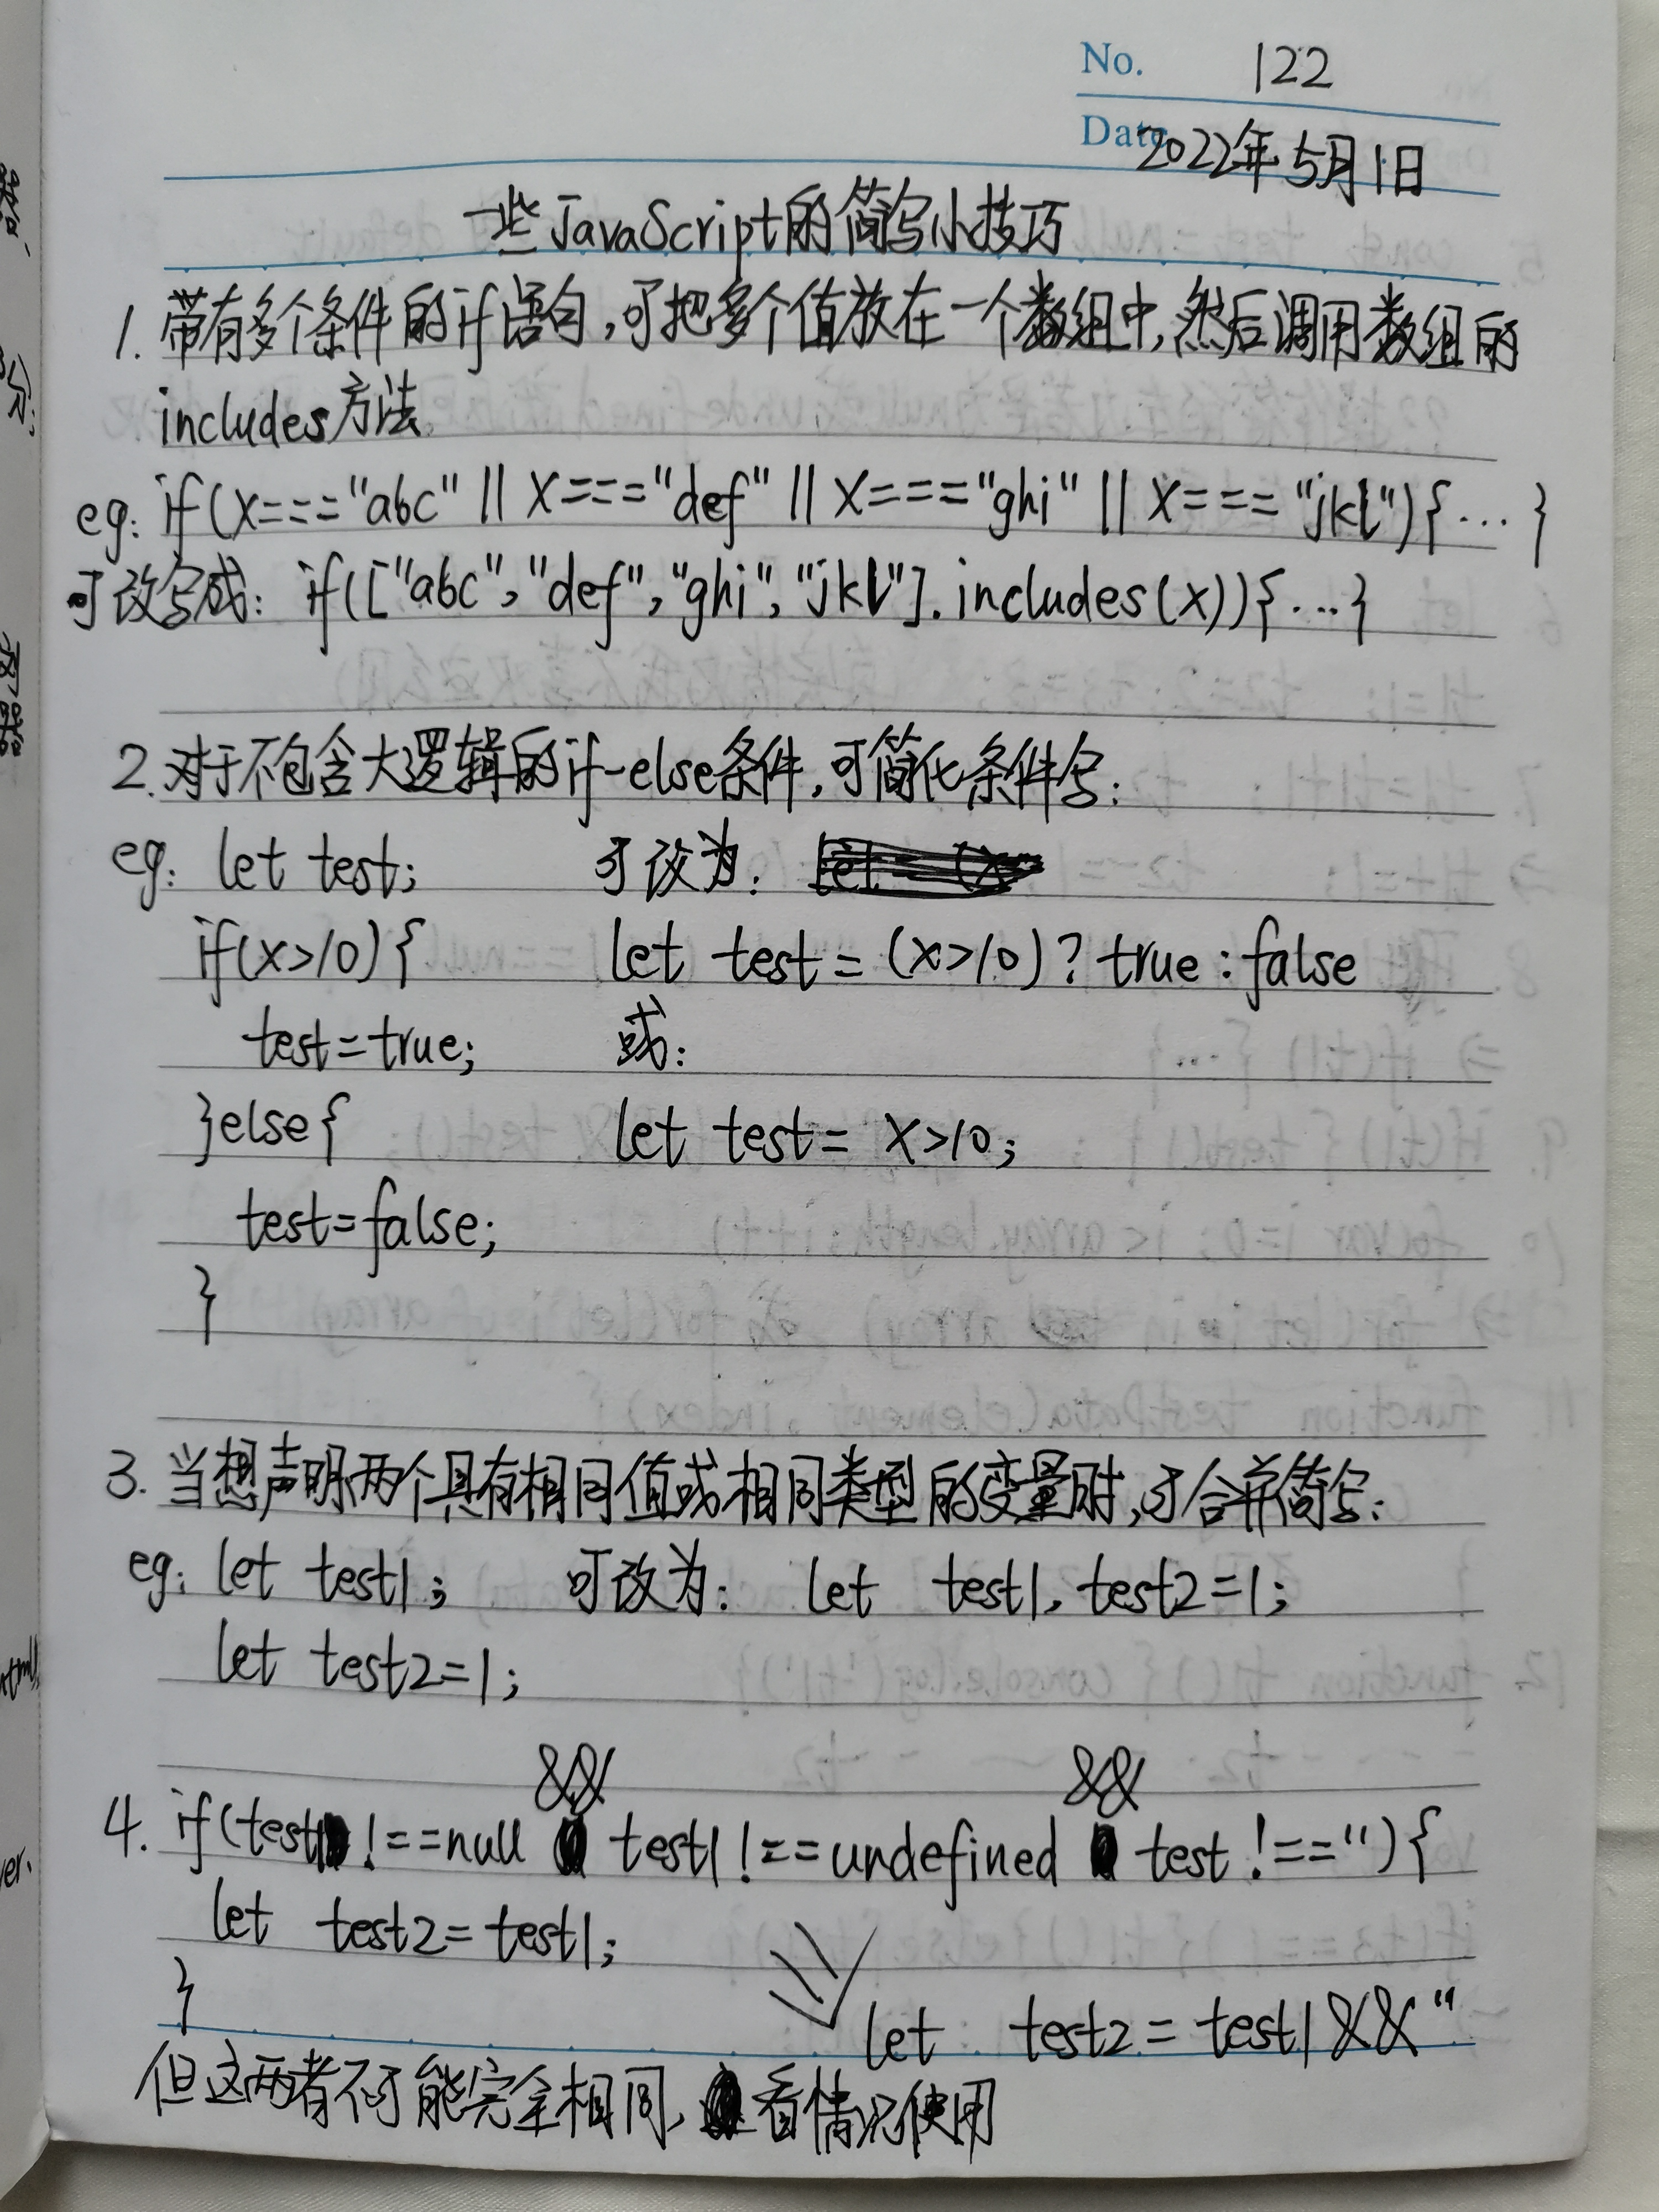 No. 122
Date 2022年5月1日
一些JavaScript的简写小技巧
1. 带有多个条件的if语句,可把多个值放在一个数组中,然后调用数组的
includes方法.
eg: if(x==="abc" || x==="def" || x==="ghi" || x==="jkl"){...}
可改写成: if(["abc","def","ghi","jkl"].includes(x)){...}
2.对于不包含大逻辑的if-else条件,可简化条件写:
eg: let test; 可改为:
if(x>10){ let test = (x>10)? true : false
test=true; 或:
}else{ let test = x>10;
test=false;
}
3. 当想声明两个具有相同值或相同类型的变量时,可合并简写:
eg: let test1; 可改为: let test1, test2=1;
let test2=1;
&& &&
4. if(test1 !==null test1 !==undefined test !=='') {
let test2=test1;
}
let test2 = test1 && ''
但这两者不可能完全相同,看情况使用